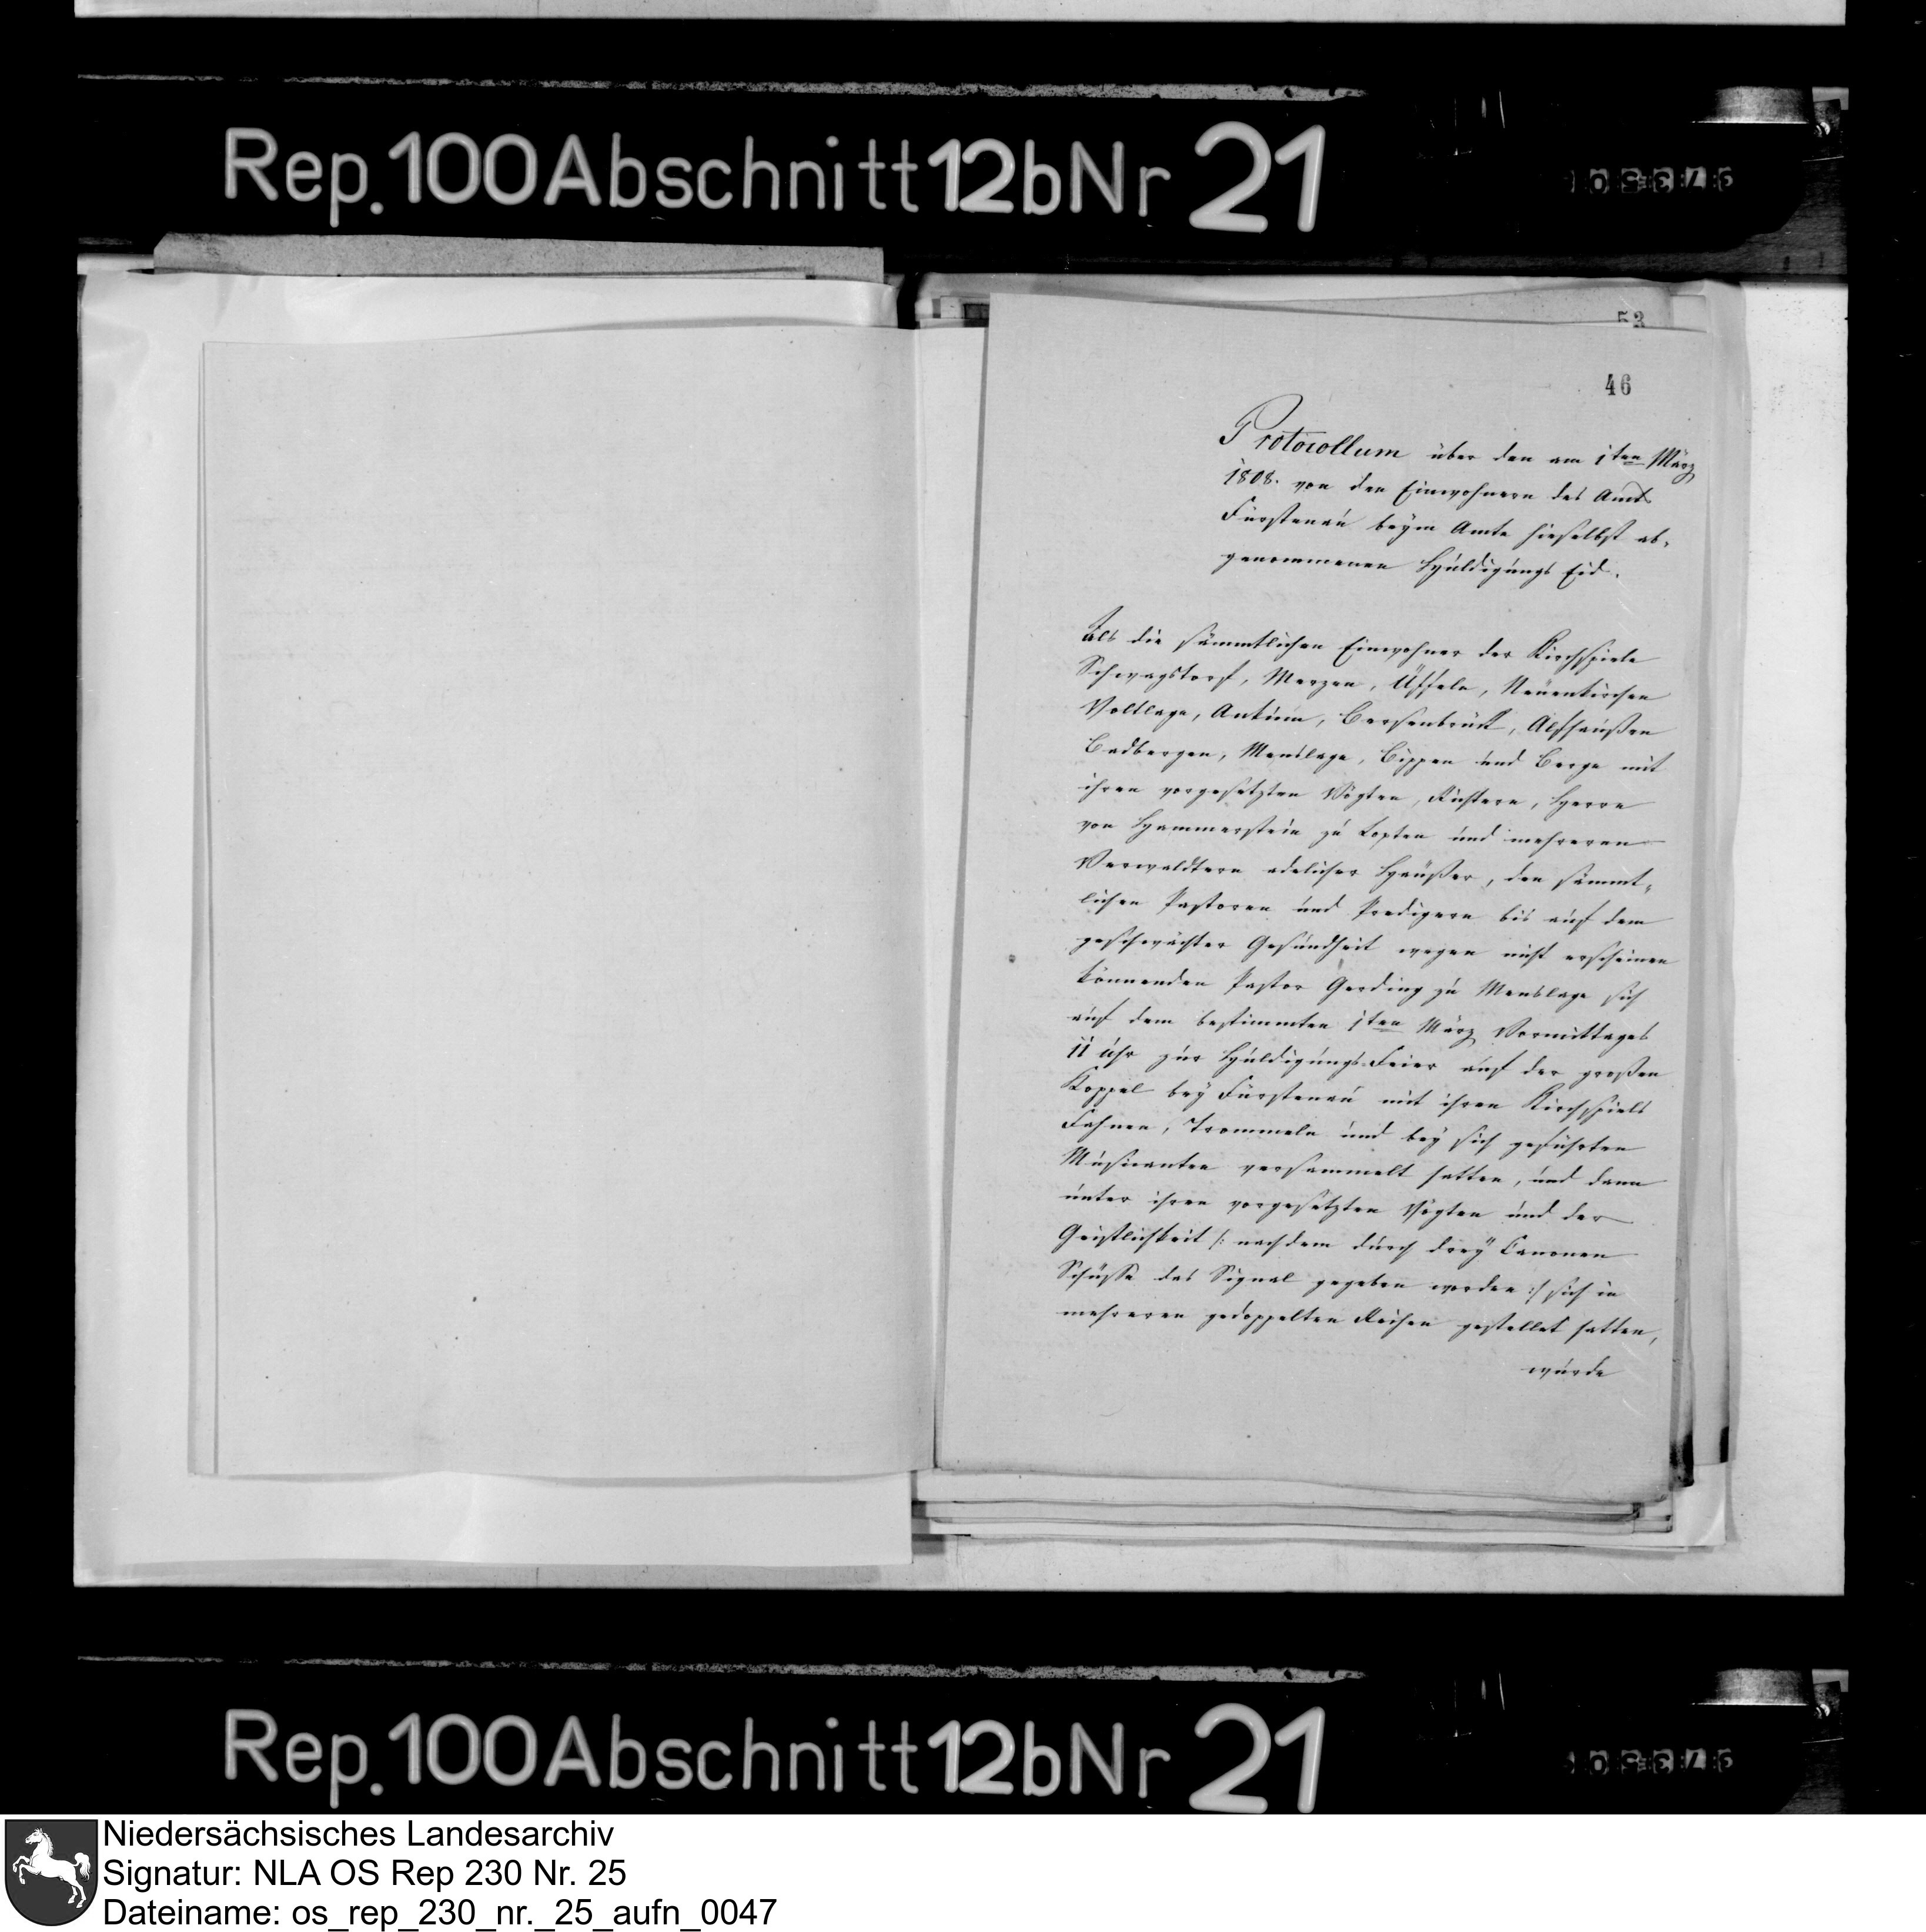 Rep. 100 Abschnitt 12b Nr 21
53
46
Protocollum über den am 1ten März
1808. von den Einwohnern des Amts
Fürstenau beym Amte hieselbst ab-
genommenen Huldigungs Eid.
Als die sämmtlichen Einwohner der Kirchspiele
Schwagstorf, Merzen, Üffeln, Neuenkirchen
Voltlage, Ankum, Bersenbrück, Alfhaußen
Badbergen, Menslage, Bippen und Berge mit
ihren vorgesetzten Vögten, Küstern, Herrn
von Hammerstein zu Loxten und mehreren
Verwaldtern adelicher Häußer, den sämmt-
lichen Pastoren und Predigern bis auf dem
geschwächter Gesundheit wegen nicht erscheinen
könnenden Pastor Gerding zu Menslage sich
auf dem bestimmten 1ten März Vormittages
11 Uhr zur Huldigungs Feier auf der großen
Koppel bey Fürstenau mit ihren Kirchspiels
Fahnen, Trommeln und bey sich geführten
Musicanten versammelt hatten, und dann
unter ihren vorgesetzten Vögten und der
Geistlichkeit /: nachdem durch drey Canonen
Schüsse das Signal gegeben worden :/ sich in
mehreren gedoppelten Reihen gestellet hatten,
wurde
Rep. 100 Abschnitt 12b Nr 21
Niedersächsisches Landesarchiv
Signatur: NLA OS Rep 230 Nr. 25
Dateiname: os_rep_230_nr._25_aufn_0047